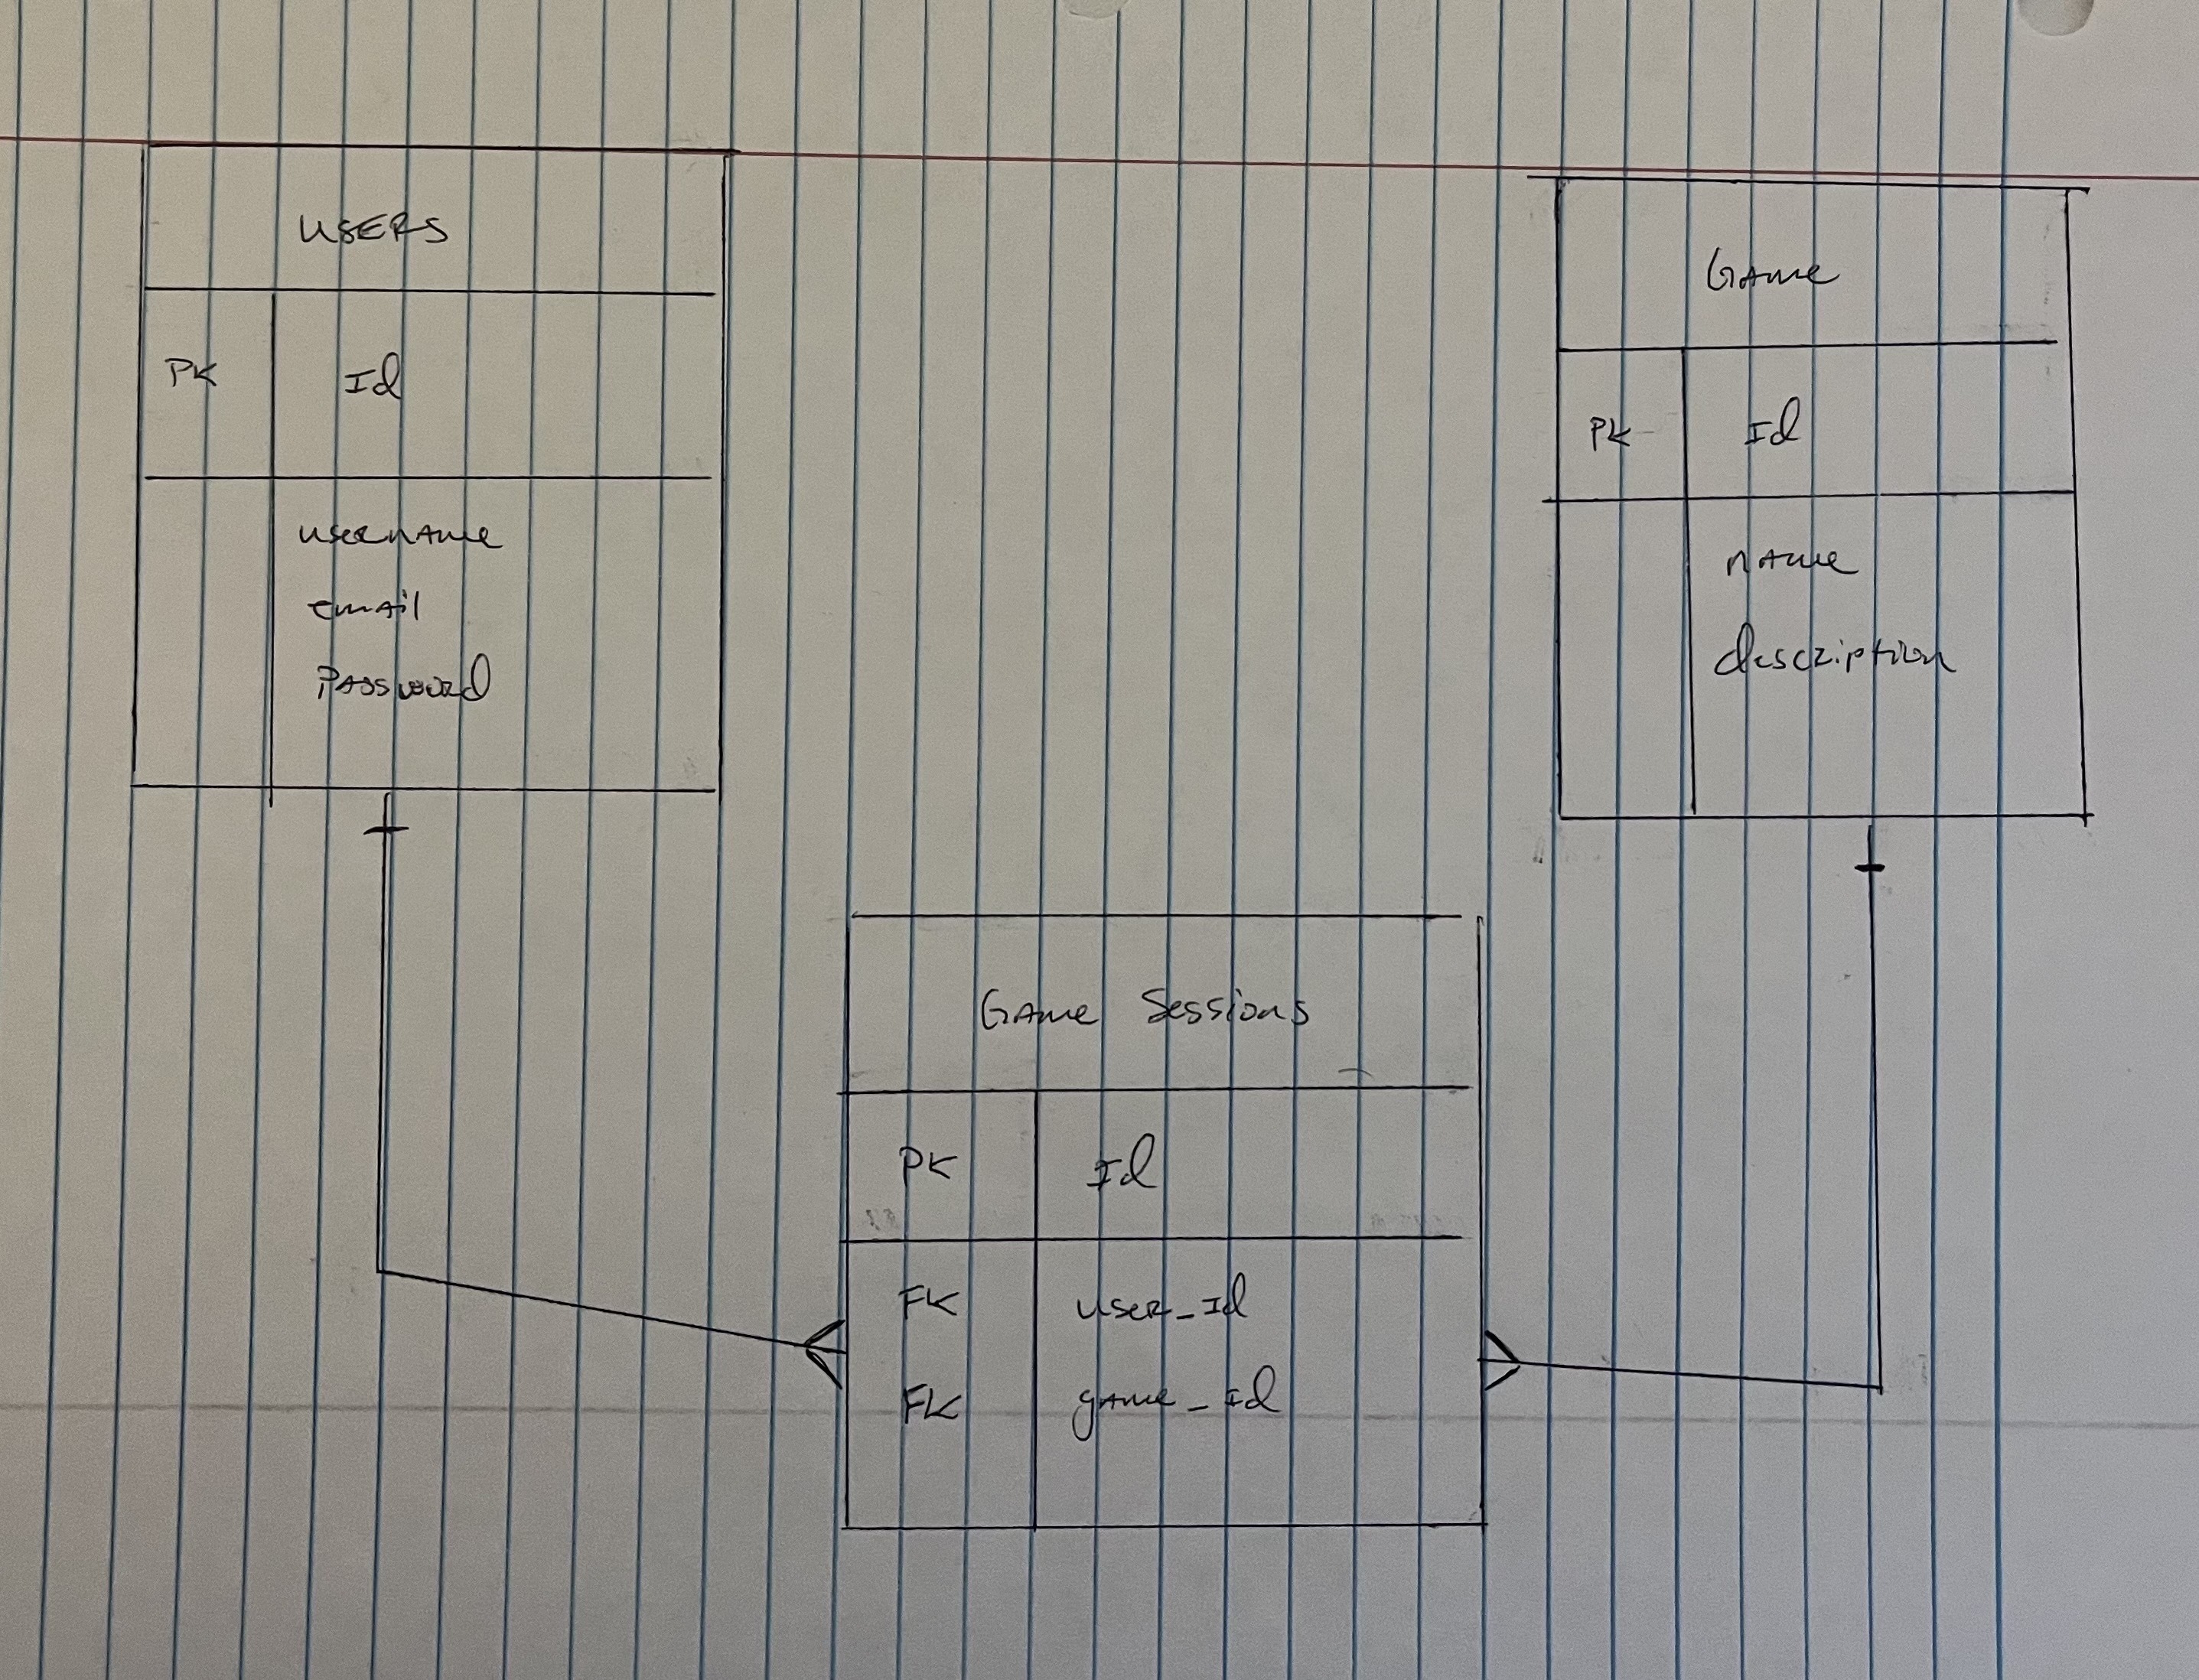 USERS
PK Id
username
email
Password
Game
PK Id
name
description
Game Sessions
PK Id
FK user_Id
FK game_Id